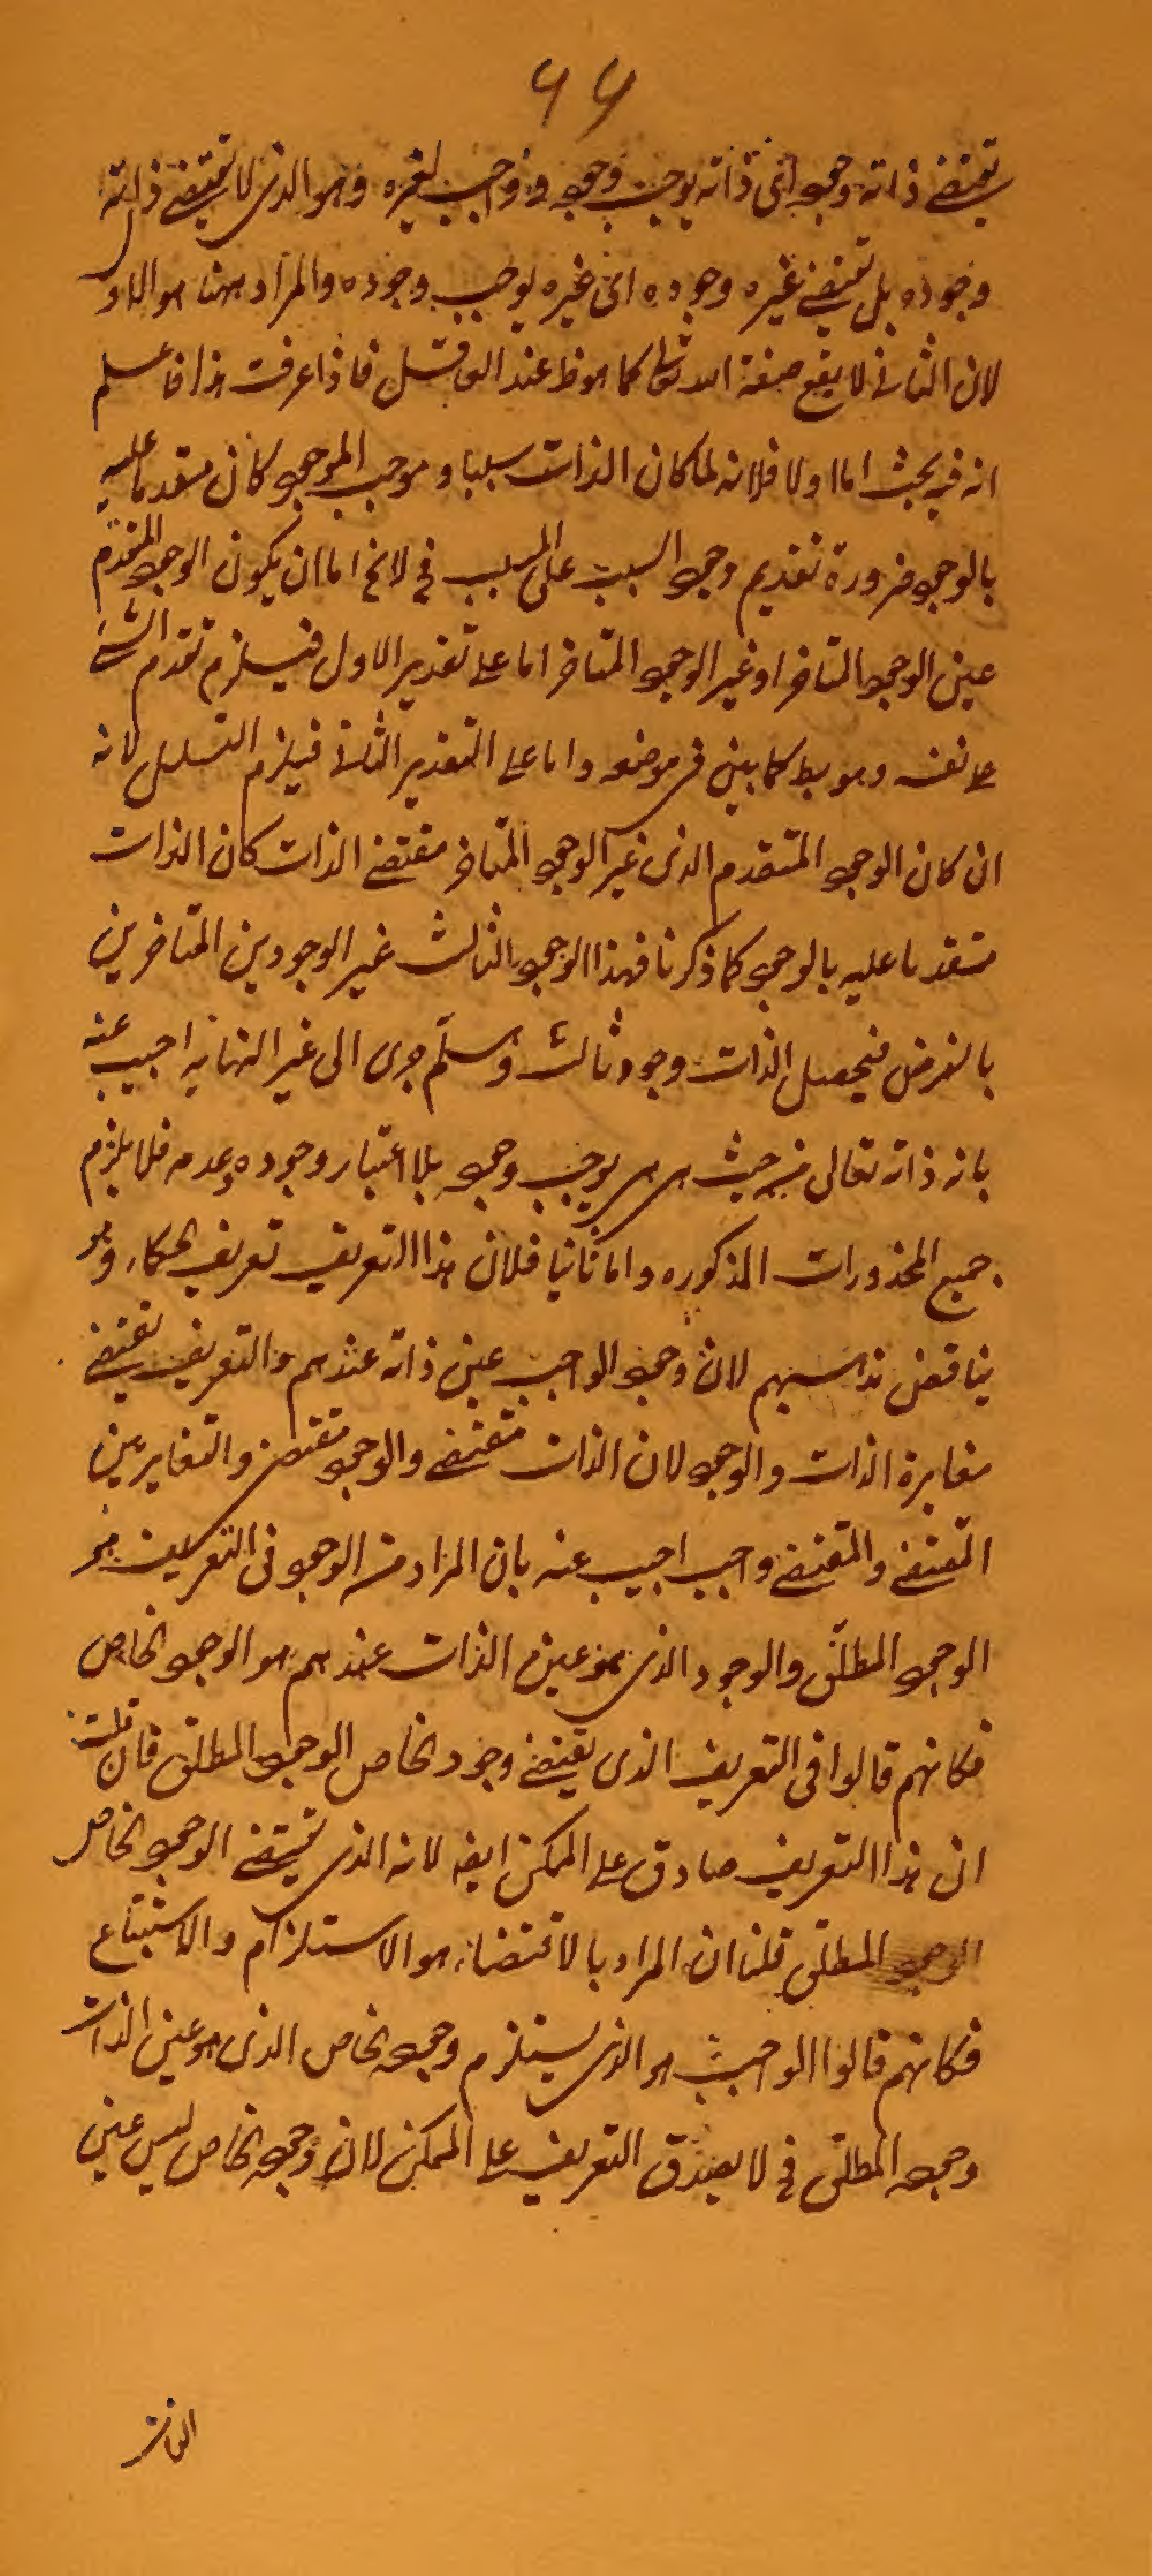 ٦٦
يقتضے ذاته وجوده اى ذاته يوجب وجوده و واجب لغيره وهو الذى لا يقتضے ذاته
وجوده بل يقتضے غيره وجوده اى غيره يوجب وجوده والمراد بهنا هو الاول
لان الثانے لا يقع صفة الله تعالى كما هو ظ عند العاقل فاذا عرفت هذا فاعلم
انه فيه بحث اما اولا فلانه لما كان الذات سببا و موجب الموجود كان متقدما عليه
بالوجود ضرورة تقديم وجود السبب على المسبب فح لا يخ اما ان يكون الوجود المتقدم
عين الوجود المتاخر او غير الوجود المتاخر اما علے تقدير الاول فيلزم تقدم الشئ
علے نفسه وهو بط كما بين فى موضعه واما علے التقدير الثانے فيلزم التسلسل لانه
ان كان الوجود المتقدم الذى غير الوجود المتاخر مقتضے الذات كان الذات
متقدما عليه بالوجود كما ذكرنا فهذا الوجود الثالث غير الوجودين المتاخرين
بالفرض فيحصل الذات وجود ثالث و سلم جرى الى غير النهاية اجيب عنه
بانه ذاته تعالى من حيث هى هى يوجب وجوده بلا اعتبار وجوده وعدمه فلا يلزم
جميع المحذورات المذكوره واما ثانيا فلان هذا التعريف تعريف الحكماء وهو
يناقض مذاهبهم لان وجود الواجب عين ذاته عندهم والتعريف يقتضے
مغايرة الذات والوجود لان الذات مقتضے والوجود مقتضى والتغاير بين
المقتضے والمقتضے واجب اجيب عنه بان المراد من الوجود فى التعريف هو
الوجود المطلق والوجود الذى هو عين الذات عندهم هو الوجود الخاص
فكانهم قالوا فى التعريف الذى يقتضے وجود الخاص الوجود المطلق فان قلت
ان هذا التعريف صادق علے الممكن ايضا لانه الذى يقتضے الوجود الخاص
الوجود المطلق قلنا ان المراد بالاقتضاء هو الاستلزام والاستتباع
فكانهم قالوا الواجب هو الذى يستلزم وجوده الخاص الذى هو عين الذات
وجوده المطلق فح لا يصدق التعريف علے الممكن لان وجوده الخاص ليس عين